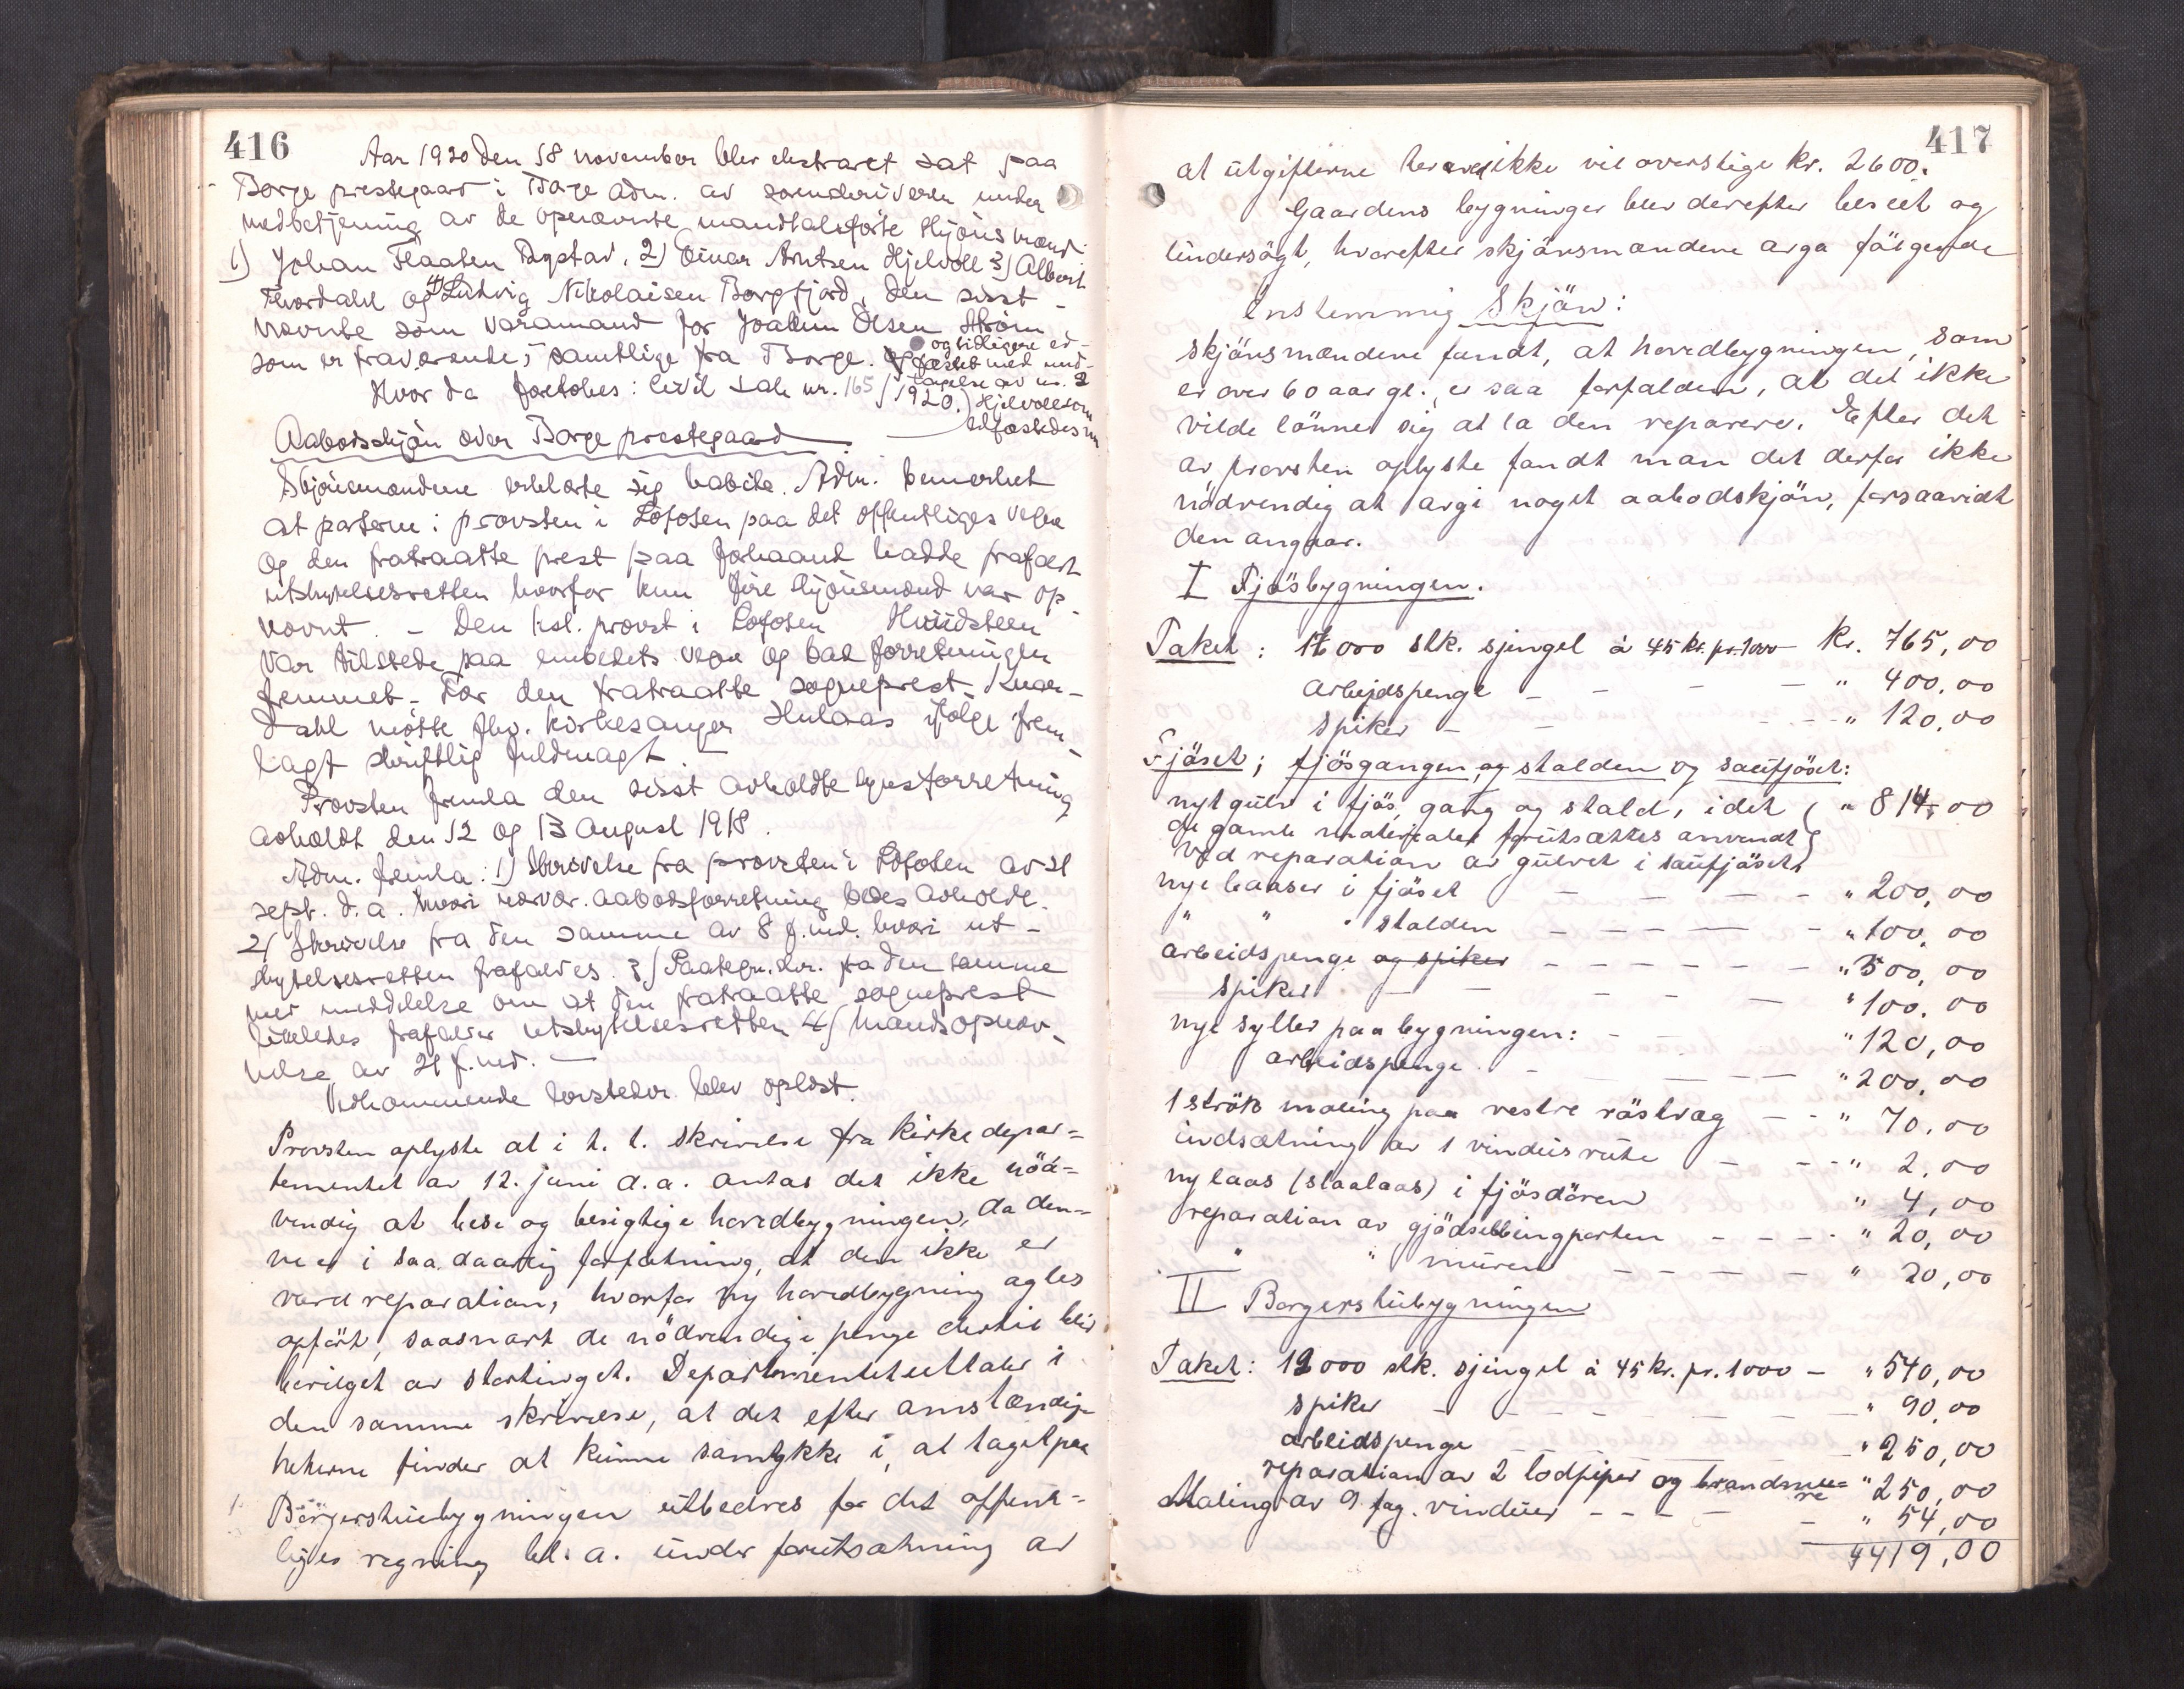 416
Aar 1920 den 18 november blev ekstraret sat paa
Borge prestegaard i Borge adm. av sorenskriveren under
medbetjening av de opnævnte mandtalsførte skjønsmænd:
1) Johan Flaaten Pagstad, 2) Einar Arntsen Hjelvoll 3) Albert
Thordahl og 4) Ludvig Nikolaisen Borgfjord, den sisst-
nævnte som varamand for Joakim Olsen Strøm
som er fraværende, samtlige fra Borge. og tidligere ed-
fæstet med und-
tagelse av nr. 2
Hjelvoll som
edfæstedes nu
Hvor da foretokes: Civil sak nr. 165/1920.
Aabodsskjøn over Borge prestegaard.
Skjønsmændene erklærte sig habile. Adm. bemerket
at parterne: provsten i Lofoten paa det offentliges vegne
og den fratraatte prest paa forhaand hadde frafaldt
utskytelsesretten hvorfor kun fire skjønsmænd var op-
nævnt. – Den kst. provst i Lofoten Hvidsteen
var tilstede paa embedets vegne og bad forretningen
fremmet. For den fratraatte sogneprest
dahl møtte fhv. kirkesanger ifølge frem-
lagt skriftlig fuldmagt. –
Provsten fremla den sisst avholdte synsforretning
avholdt den 12 og 13 august 1918.
Adm. fremla: 1) Skrivelse fra provsten i Lofoten av 21
sept. d.a. hvori nærvær. aabodsforretning bedes avholdt.
2) Skrivelse fra den samme av 8 f.md. hvori ut-
skytelsesretten frafaldes. 3) Paategn.skr. fra den samme
med meddelelse om at den fratraatte sogneprest
likeledes frafalder utskytelsesretten 4) Mandsopnæv-
nelse av 21 f.md. –
Vedkommende lovsteder blev oplæst.
Provsten oplyste at i h. t. skrivelse fra kirkedepar=
tementet av 12. juni d.a. antas det ikke nöd=
vendig at bese og besigtige hovedbygningen, da den=
ne er i saa daarlig forfatning, at den ikke er
værd reparation, hvorfor ny hovedbygning agtes
opfört, saasnart de nödvendige penge dertil blir
bevilget av stortinget. Departementet uttaler i
den samme skrivelse, at det efter omstændig-
heterne finder at kunne samtykke i, at taget paa
Borgerstuebygningen utbedres for det offent=
liges regning bl. a. under forutsætning av
417
at utgifterne herved ikke vil overstige kr. 2600.
Gaardens bygninger blev derefter beseet og
undersögt, hvorefter skjönsmændene avga fölgende
enstemmig skjön:
skjönsmændene fandt, at hovedbygningen, som
er over 60 aar gl., er saa forfalden, at det ikke
vilde lönne sig at la den reparere. Efter det
av provsten oplyste fandt man det derfor ikke
nödvendig at avgi noget aabodskjön, forsaavidt
den angaar.
I Fjösbygningen.
Taket: 17000 stk. sjingel à 45 kr. pr. 1000 – Kr. 765,00
arbejdspenge – – – – " 400,00
spiker – – – – " 120,00
Fjöset; fjösgangen, og stalden og saufjöset:
nyt gulv i fjös, gang og stald, idet " 814,00
de gamle materjaler forutsættes anvendt
ved reparation av gulvet i saufjöset
nye baaser i fjöset – – – – " 200,00
" " " stalden – – – – " 100,00
arbeidspenge og spiker – – – – – " 500,00
spiker – – – – – " 100,00
nye syller paa bygningen: – – " 120,00
arbeidspenge – – – – " 200,00
1 strök maling paa vestre röstvæg – – " 70,00
indsætning av 1 vindusrute – – – " 2,00
ny laas (staalaas) i fjösdören " 4,00
reparation av gjödselbingporten – – – – " 20,00
" " muren – – – – – " 20,00
II Borgerstubygningen
Taket: 12000 stk. sjingel à 45 kr. pr. 1000 – " 540,00
spiker – – – – – – " 90,00
arbeidspenge – – – – " 250,00
reparation av 2 lodpiper og brandmu=
re " 250,00
Maling av 9 fag. vinduer – – – – – " 54,00
4419,00